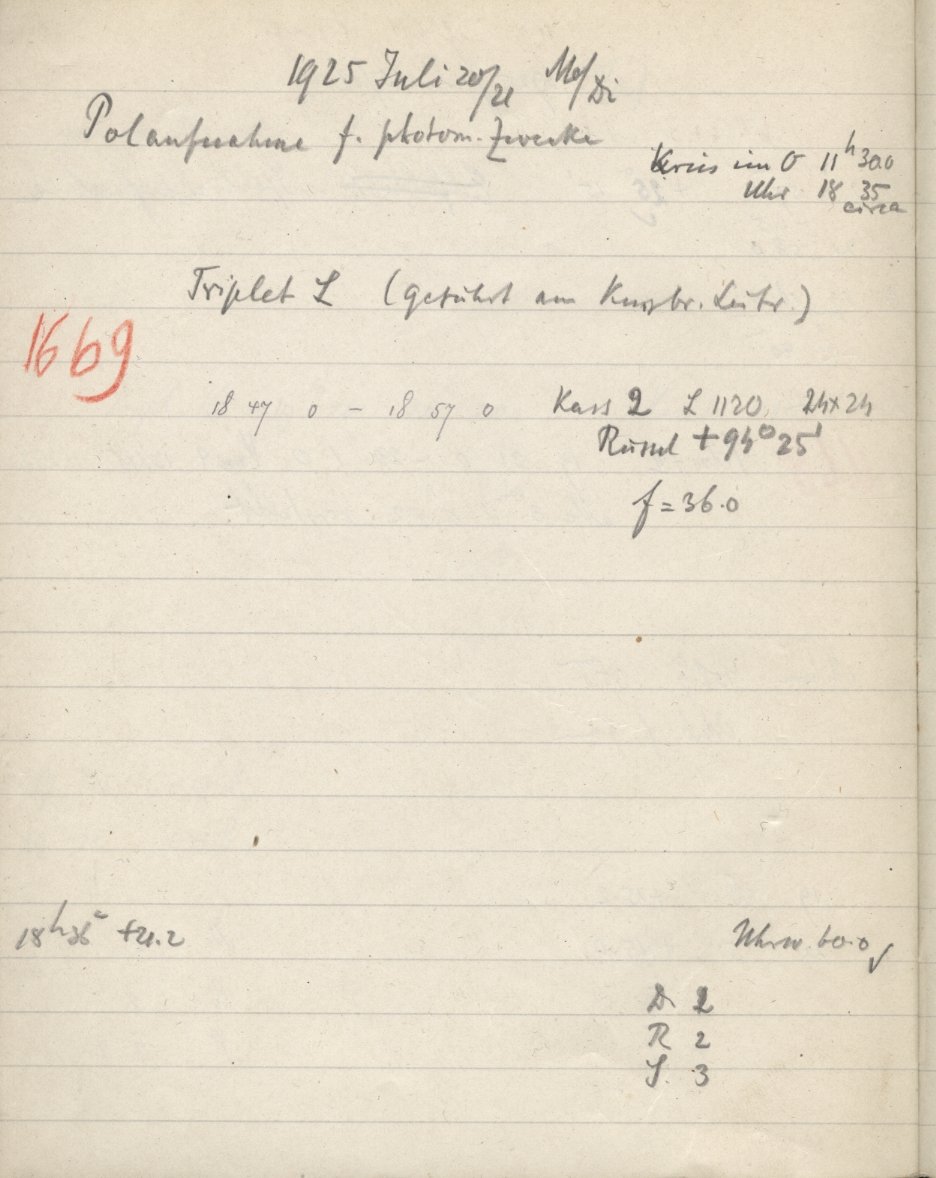 1925 Juli 20/21 Mo/Di
Polaufnahme f. photom. Zwecke
Kreis im O 11h 30.0
Uhr 18 35
circa
Triplet L (geführt am Kurzbr. Leitr.)
1669
18 47 0 – 18 57 0 Kass 2 L 1120 24x24
Rüssel +94° 25'
f = 36.0
18h 36 +21.2
Uhrw. 60.0 ✓
D 2
R 2
S. 3